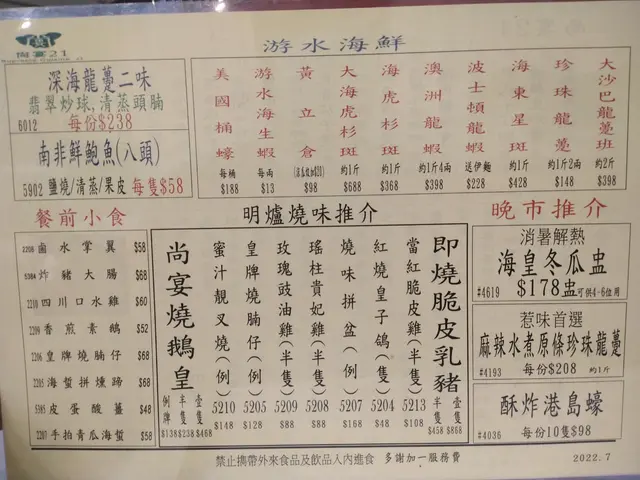 尚宴21
游水海鮮
深海龍躉二味
翡翠炒球,清蒸頭腩
6012 每份$238
南非鮮鮑魚(八頭)
5902 鹽燒/清蒸/果皮 每隻$58
美國桶蠔 每桶 $188
游水海生蝦 每兩 $13
黃立倉 $98
大海虎杉斑 約1斤 $688
海虎杉斑 約1斤 $368
澳洲龍蝦 約1斤4兩 $398
波士頓龍蝦 送伊麵 $228
海東星斑 約1斤 $428
珍珠龍躉 約1斤2兩 $148
大沙巴龍躉班 約2斤 $398
餐前小食
2208 鹵水掌翼 $58
5384 炸豬大腸 $68
2210 四川口水雞 $60
2209 香煎素鵝 $52
2206 皇牌燒腩仔 $68
2205 海蜇拼燻蹄 $68
5385 皮蛋酸薑 $48
2207 手拍青瓜海蜇 $58
明爐燒味推介
尚宴燒鵝皇
例牌 $138 半隻 $238 壹隻 $468
蜜汁靚叉燒(例) 5210 $148
皇牌燒腩仔(例) 5205 $128
玫瑰豉油雞(半隻) 5209 $88
瑤柱貴妃雞(半隻) 5208 $88
燒味拼盆(例) 5207 $168
紅燒皇子鴿(隻) 5204 $48
當紅脆皮雞(半隻) 5213 $108
即燒脆皮乳豬
半隻 $458 壹隻 $868
晚市推介
消暑解熱
海皇冬瓜盅
#4619 $178盅 可供4-6位用
惹味首選
麻辣水煮原條珍珠龍躉
#4193 每份$208 約1斤
酥炸港島蠔
#4036 每份10隻$98
禁止携帶外來食品及飲品入內進食 多謝加一服務費
2022.7